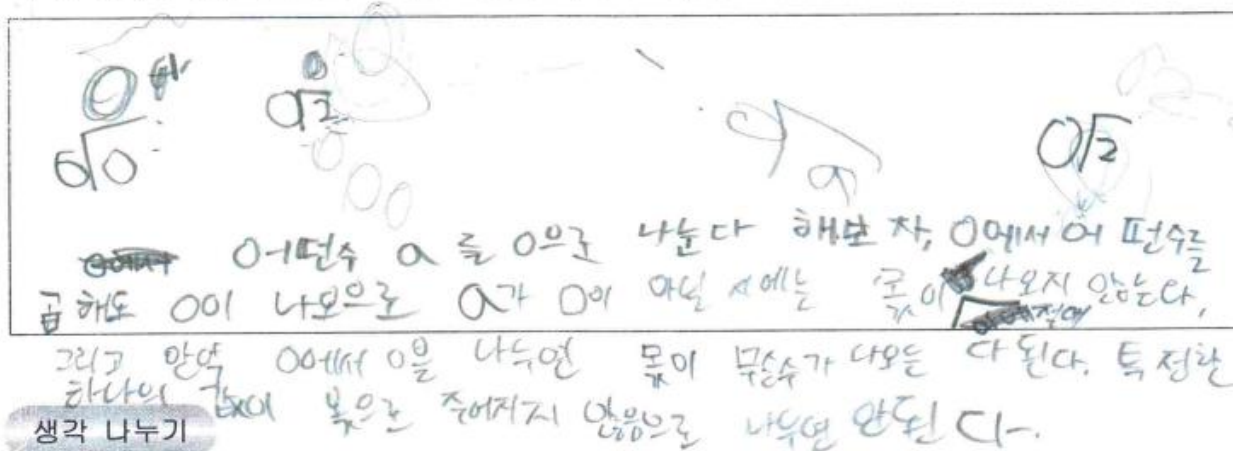 0
6)0
0
0)2
0)2
어떤수 a를 0으로 나눈다 해보자, 0에서 어떤수를
곱해도 0이 나오으로 a가 0이 아닐 시에는 몫이 나오지 않는다,
그리고 만약 0에서 0을 나누면 몫이 무슨수가 나오든 다 된다. 특정한
하나의 값이 몫으로 주어지지 않음으로 나누면 안된다.
생각 나누기